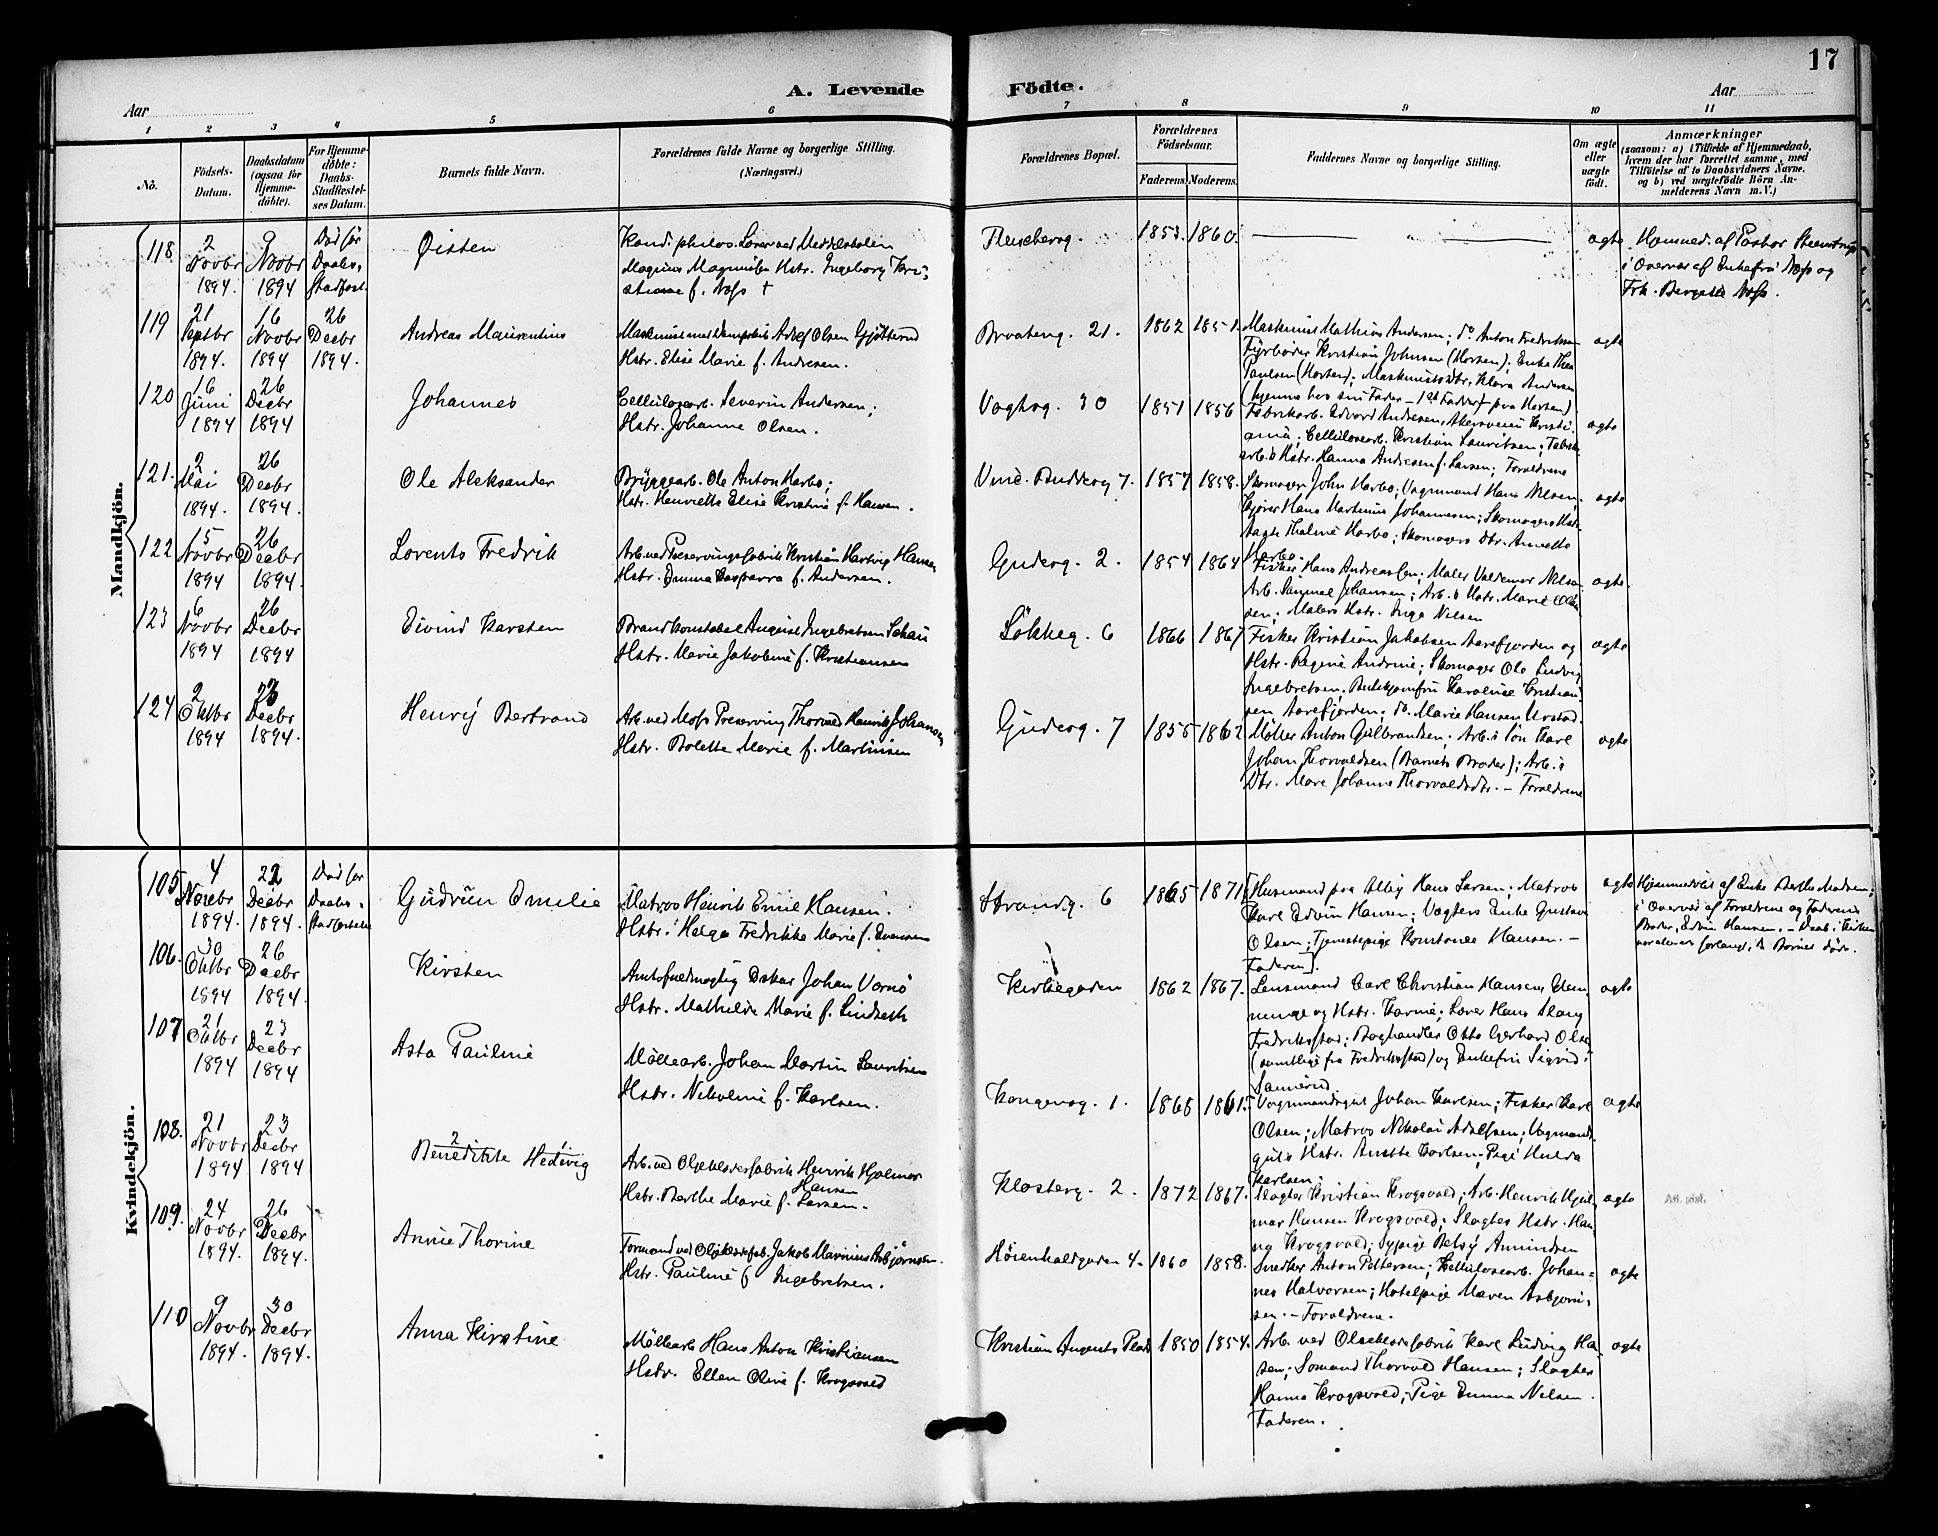 17
A. Levende Födte.
Aar
Aar
1 2 3 4 5 6 7 8 9 10 11
No.
Födsels-Datum.
Daabsdatum (ogsaa for Hjemme-döbte).
For Hjemme-döbte: Daabs-Stadfæstel-ses Datum.
Barnets fulde Navn.
Forældrenes fulde Navne og borgerlige Stilling.
(Næringsvei.)
Forældrenes Bopæl.
Forældrenes Födselsaar.
Faderens. Moderens.
Faddernes Navne og borgerlige Stilling.
Om ægte eller uægte födt.
Anmærkninger
(saasom: a) i Tilfælde af Hjemmedaab, hvem der har forrettet samme, med Tilföielse af to Daabsvidners Navne, og b) ved uægtefödte Börn An-melderens Navn m. V.)
Mandkjön.
118. 2 Novbr 1894. 9 Novbr 1894 Död før Daabs-stadfest.
Øisten
Kand. philos. Lærer ved Middelskolen
Magnus Magnussen Hstr. Ingeborg Kri-
stiane f. Næss +
1853. 1860.
ægte
Hjemmed. af Pastor Steenstrup
i Overvær af Enkefru Næss og
Frk. Bergitte Næss.
119 21 Septbr 1894. 16 Novbr 1894 26 Decbr 1894.
Andreas Maurentius
Adolf Olsen Gjøtterud
Hstr. Elise Marie f. Andresen.
Braateng. 21. 1862 1851.
Maskinist Mathias Andersen; do Anton Fredriksen
Fyrbøder Kristian Johnsen (Horten); Enke Thea
Paulsen (Horten); Maskinists Dtr. Klara Andersen
(hjemme hos sin Fader - 1ste Fadder fra Horten).
ægte
120 16 Juni 1894 26 Decbr 1894
Johannes
Cellulosearb. Severin Andersen;
Hstr. Johanne Olsen.
Vogtsg. 30 1851 1856
Fabrikarb. Edvard Andresen, Akersveien Kristi-
ania; Cellulosearb. Kristian Lauritsen; Fabrik-
arb.s Hstr. Hanna Andresen f. Larsen; Forældrene
ægte
121. 2 Mai 1894. 26 Decbr 1894.
Ole Aleksander
Bryggearb. Ole Anton Harbo;
Hstr. Henriette Elise Kristine f. Hansen.
Vinc. Buddesg 7. 1857 1858.
Skomager John Harbo; Vognmand Hans Nilsen;
Kjører Hans Martinus Johannesen; Skomagers Hstr.
Aagte Thaline Harbo; Skomagers Dtr. Annette
Harbo.
ægte
122 15 Novbr 1894 26 Decbr 1894.
Lorents Fredrik
Arb. ved Preservingsfabrik Kristian Hartvig Hansen
Hstr. Emma f. Andersen.
Gudesg. 2. 1854 1864
Fisker Hans Andreassen; Maler Valdemar Nilsen
Arb. Samuel Johansen; Arb.s Hstr. Marie Ol-
sen; Malers Hstr. Inga Nilsen
ægte.
123 6 Novbr 1894 26 Decbr 1894
Eivind Karsten
Brandkonstabel August Ingebretsen Schau
Hstr. Marie Jakobine f. Kristiansen
Løkkeg. 6 1866 1867
Fisker Kristian Jakobsen Aarefjorden og
Hstr. Regine Andrine; Skomager Ole Ludvig
Ingebretsen. Butikjomfru Karoline Kristian-
sen Aarefjorden; do. Marie Hansen Urstad.
ægte
124 2 Oktbr 1894 23 Decbr 1894.
Henry Bertrand
Arb. ved Moss Preserving Thorvald Henrik Johansen
Hstr. Bolette Marie f. Martinsen
Gudesg. 7 1855 1862
Møller Anton Gulbrandsen; Arb.s Søn Karl
Johan Thorvaldsen (Barnets Broder); Arb.s
Dtr. Mare Johanne Thorvaldsdtr. - Forældrene
ægte
Kvindekjön.
105 4 Novbr 1894. 22 Decbr 1894. Död før Daabs-stadfæstelse
Gudrun Emilie
Matros Henrik Emil Hansen.
Hstr. Helga Fredrikke Marie f. Evensen
Strandg. 6 1865 1871
[Husmand paa Alby Hans Larsen; Matros
Karl Edvin Hansen; Vægters Enke Gustava
Olsen; Tjenestepige Konstance Hansen. -
Faderen].
ægte
Hjemmedøbt af Enke Berthe Madsen;
i Overvær af Forældrene og Faderens
Broder, Edvin Hansen. - Daab i Kirken
Barnet døde.
106. 30 Oktbr 1894 26 Decbr 1894.
Kirsten
Amtsfuldmægtig Oskar Johan Vornø
Hstr. Mathilde Marie f. Lindseth
Kirkegaden 1862 1867.
Lensmand Carl Christian Hansen Glem-
minge og Hstr. Karine; Lærer Hans Slang
Fredriksstad; Boghandler Otto Gerhard Olsen
(samtlige fra Fredriksstad) og Enkefru Sigrid
Sannerud.
ægte
107 21 Oktbr 1894 23 Decbr 1894
Asta Pauline
Møllearb. Johan Martin Lauritsen
Hstr. Nikoline f. Karlsen.
Kongensg. 1. 1865 1861.
Vognmandsgut Johan Karlsen; Fisker Karl
Olsen; Matros Nikolai Adolfsen; Vognmands-
guts Hstr. Anette Karlsen; Pige Hulda
Karlsen.
ægte
108. 21 Novbr 1894 23 Decbr 1894
2
Benedikte Hedevig
Arb. ved Oljeklædefabrik Henrik Hjalmar
Hansen
Hstr. Berthe Marie f. Larsen.
Klosterg. 2. 1872 1867.
Slagter Kristian Krogsvold; Arb. Henrik Hjal-
mar Hansen Krogsvold; Slagters Hstr. Han-
na Krogsvold; Sypige Betsy Amundsen
ægte
Att. utst.
109. 24 Novbr 1894. 26 Decbr 1894.
Annie Thorine
Formand ved Oljeklædefab. Jakob Marinius Asbjørnsen.
Hstr. Pauline f. Ingebretsen.
Høienhaldgaden 4. 1860 1858.
Snedker Anton Pettersen; Cellulosearb. Johan-
nes Halvorsen; Hotelpige Maren Asbjørn-
sen. - Forældrene.
ægte
110 9 Novbr 1894. 30 Decbr 1894.
Anna Kirstine
Møllearb Hans Anton Kristiansen
Hstr. Ellen Olive f. Krogsvold
Kristian Augusts Plads 1850 1854.
Arb. ved Oljeklædefabrik Karl Ludvig Han-
sen; Sømand Thorvald Hansen; Slagters
Hanna Krogsvold; Pige Emma Nilsen.
Faderen.
ægte